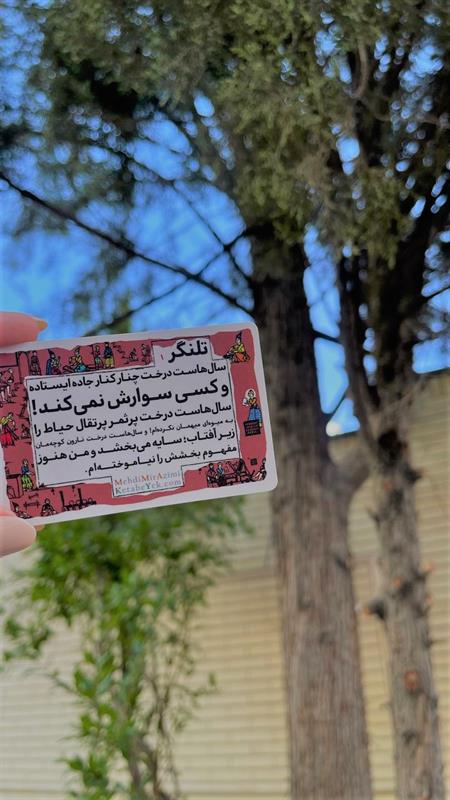 تلنگر
سال‌هاست درخت چنار کنار جاده ایستاده
و کسی سوارش نمی‌کند!
سال‌هاست درخت پرثمر پرتقال حیاط را
به میوه‌ای میهمان نکرده‌ام! و سال‌هاست درخت نارون کوچه‌مان
زیر آفتاب؛ سایه می‌بخشد و من هنوز
مفهوم بخشش را نیاموخته‌ام.
MehdiMirAzimi
KetabeYek.com